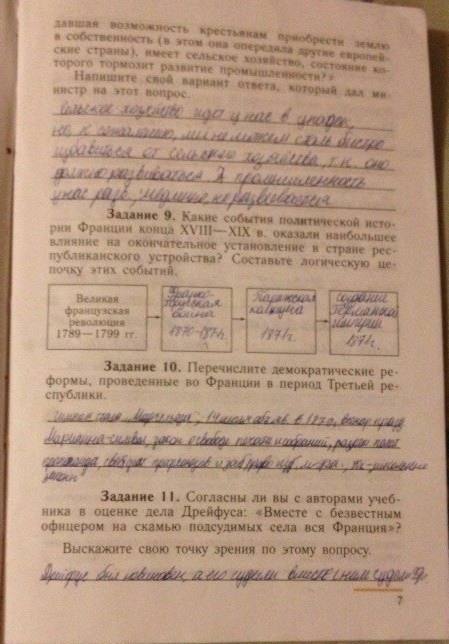 давшая возможность крестьянам приобрести землю
в собственность (в этом она опередила другие европей-
ские страны), имеет сельское хозяйство, состояние ко-
торого тормозит развитие промышленности?»
Напишите свой вариант ответа, который дал ми-
нистр на этот вопрос.
Сельское хозяйство идет у нас в упадок,
но к сожалению, мы не можем столь быстро
избавиться от сельского хозяйства, т.к. оно
должно развиваться. А промышленность
у нас
Задание 9. Какие события политической исто-
рии Франции конца XVIII—XIX в. оказали наибольшее
влияние на окончательное установление в стране рес-
публиканского устройства? Составьте логическую це-
почку этих событий.
Великая
французская
революция
1789—1799 гг.
Франко-
прусская
война
1870-1871г.
Парижская
коммуна
1871г.
создание
Германской
империи
1871г.
Задание 10. Перечислите демократические ре-
формы, проведенные во Франции в период Третьей ре-
спублики.
"Марсельеза", 14 июля
Марианна-символ, закон о свободе печати и собраний,
законы
Задание 11. Согласны ли вы с авторами учеб-
ника в оценке дела Дрейфуса: «Вместе с безвестным
офицером на скамью подсудимых села вся Франция»?
Выскажите свою точку зрения по этому вопросу.
Дрейфус был невиновен, а его судили вместе с ним судили
7